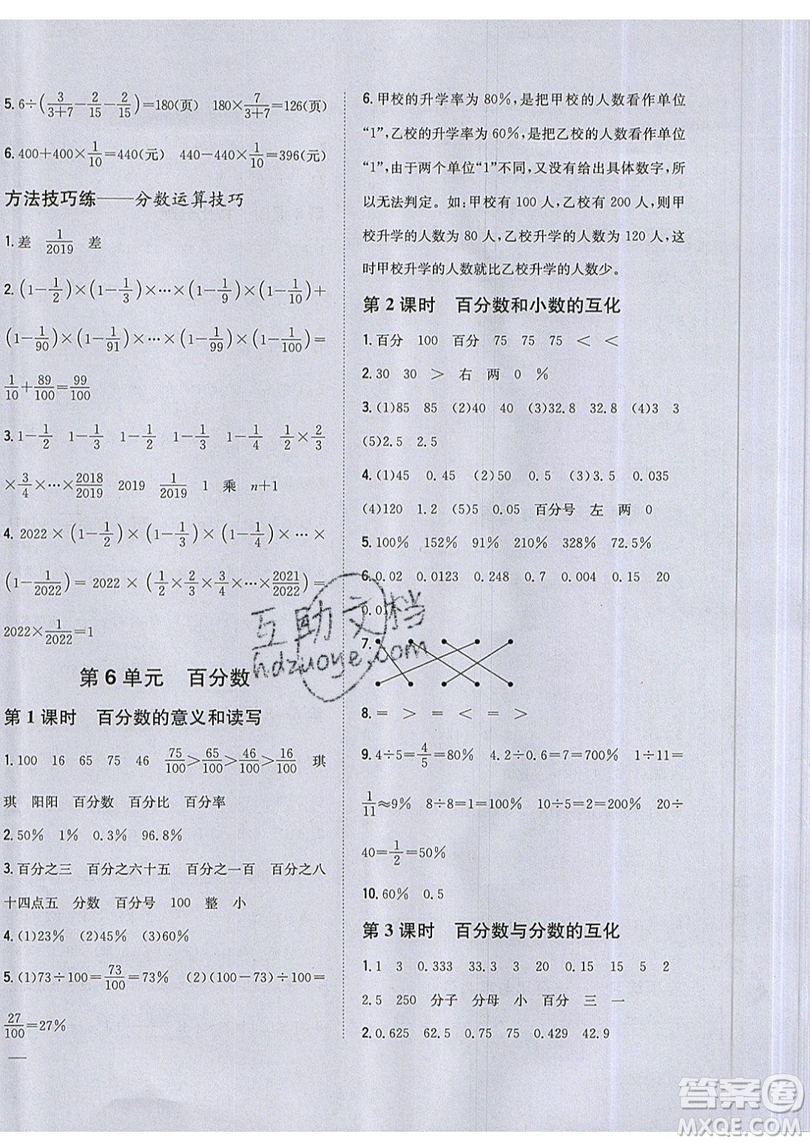 5. 6÷(3/(3+7)−2/15−2/15)=180(页) 180×7/(3+7)=126(页)
6. 400+400×1/10=440(元) 440−440×1/10=396(元)
方法技巧练——分数运算技巧
1. 差 1/2019 差
2. (1−1/2)×(1−1/3)×⋯×(1−1/9)×(1−1/10)+
(1−1/90)×(1−1/91)×⋯×(1−1/99)×(1−1/100)=
1/10+89/100=99/100
3. 1−1/2 1−1/3 1−1/4 1−1/2 1−1/3 1/2×2/3
×3/4×⋯×2018/2019 2019 1/2019 1 乘 n+1
4. 2022×(1−1/2)×(1−1/3)×(1−1/4)×⋯×
(1−1/2022)=2022×(1/2×2/3×3/4×⋯×2021/2022)=
2022×1/2022=1
第6单元 百分数
第1课时 百分数的意义和读写
1. 100 16 65 75 46 75/100>65/100>46/100>16/100 琪
琪 阳阳 百分数 百分比 百分率
2. 50% 1% 0.3% 96.8%
3. 百分之三 百分之六十五 百分之一百 百分之八
十四点五 分数 百分号 100 整 小
4. (1)23% (2)45% (3)19%
5. (1)73÷100=73/100=73% (2)(100−73)÷100=
27/100=27%
6. 甲校的升学率为80%,是把甲校的人数看作单位
“1”,乙校的升学率为60%,是把乙校的人数看作单位
“1”,由于两个单位“1”不同,又没有给出具体数字,所
以无法判定。如:甲校有100人,乙校有200人,则甲
校升学的人数为80人,乙校升学的人数为120人,这
时甲校升学的人数就比乙校升学的人数少。
第2课时 百分数和小数的互化
1. 百分 100 百分 75 75 75 < <
2. 30 30 > 右 两 0 %
3. (1)85 85 (2)40 40 (3)32.8 32.8 (4)3 3
(5)2.5 2.5
4. (1)45 0.45 (2)50 0.5 (3)3.5 0.035
(4)120 1.2 (5)5 0.05 百分号 左 两 0
5. 100% 152% 91% 210% 328% 72.5%
6. 0.02 0.0123 0.248 0.7 0.004 0.15 20
7.
8. = > = < = >
9. 4÷5=4/5=80% 4.2÷0.6=7=700% 1÷11=
1/11≈9% 8÷8=1=100% 6÷2=3=300% 20÷
40=1/2=50%
10. 60% 0.5
第3课时 百分数与分数的互化
1. 1 3 0.333 33.3 20 0.15 15 5 2
2.5 250 分子 分母 小 百分 三 一
2. 0.625 62.5 0.75 75 0.429 42.9
互助文档
hdzuoye.com
答案圈
MXQE.COM